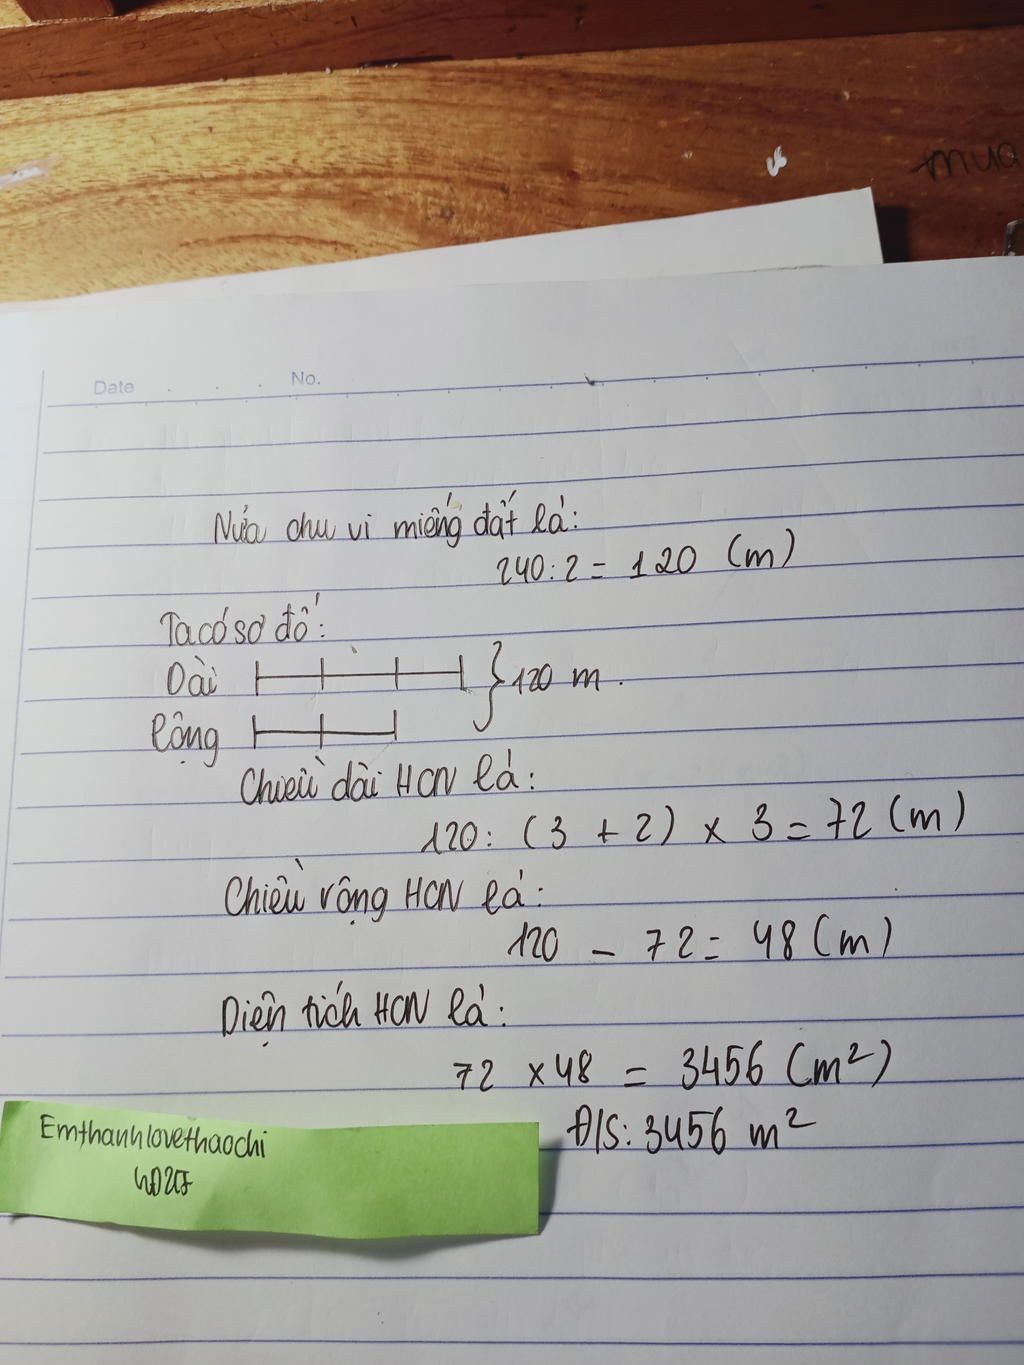 mua
Date No.
Nửa chu vi miếng đất là:
240 : 2 = 120 (m)
Ta có sơ đồ:
Dài } 120 m.
Rộng
Chiều dài HCN là:
120 : (3 + 2) x 3 = 72 (m)
Chiều rộng HCN là:
120 - 72 = 48 (m)
Diện tích HCN là:
72 x 48 = 3456 (m²)
Đ/S: 3456 m²
Emthanhlovethaochi